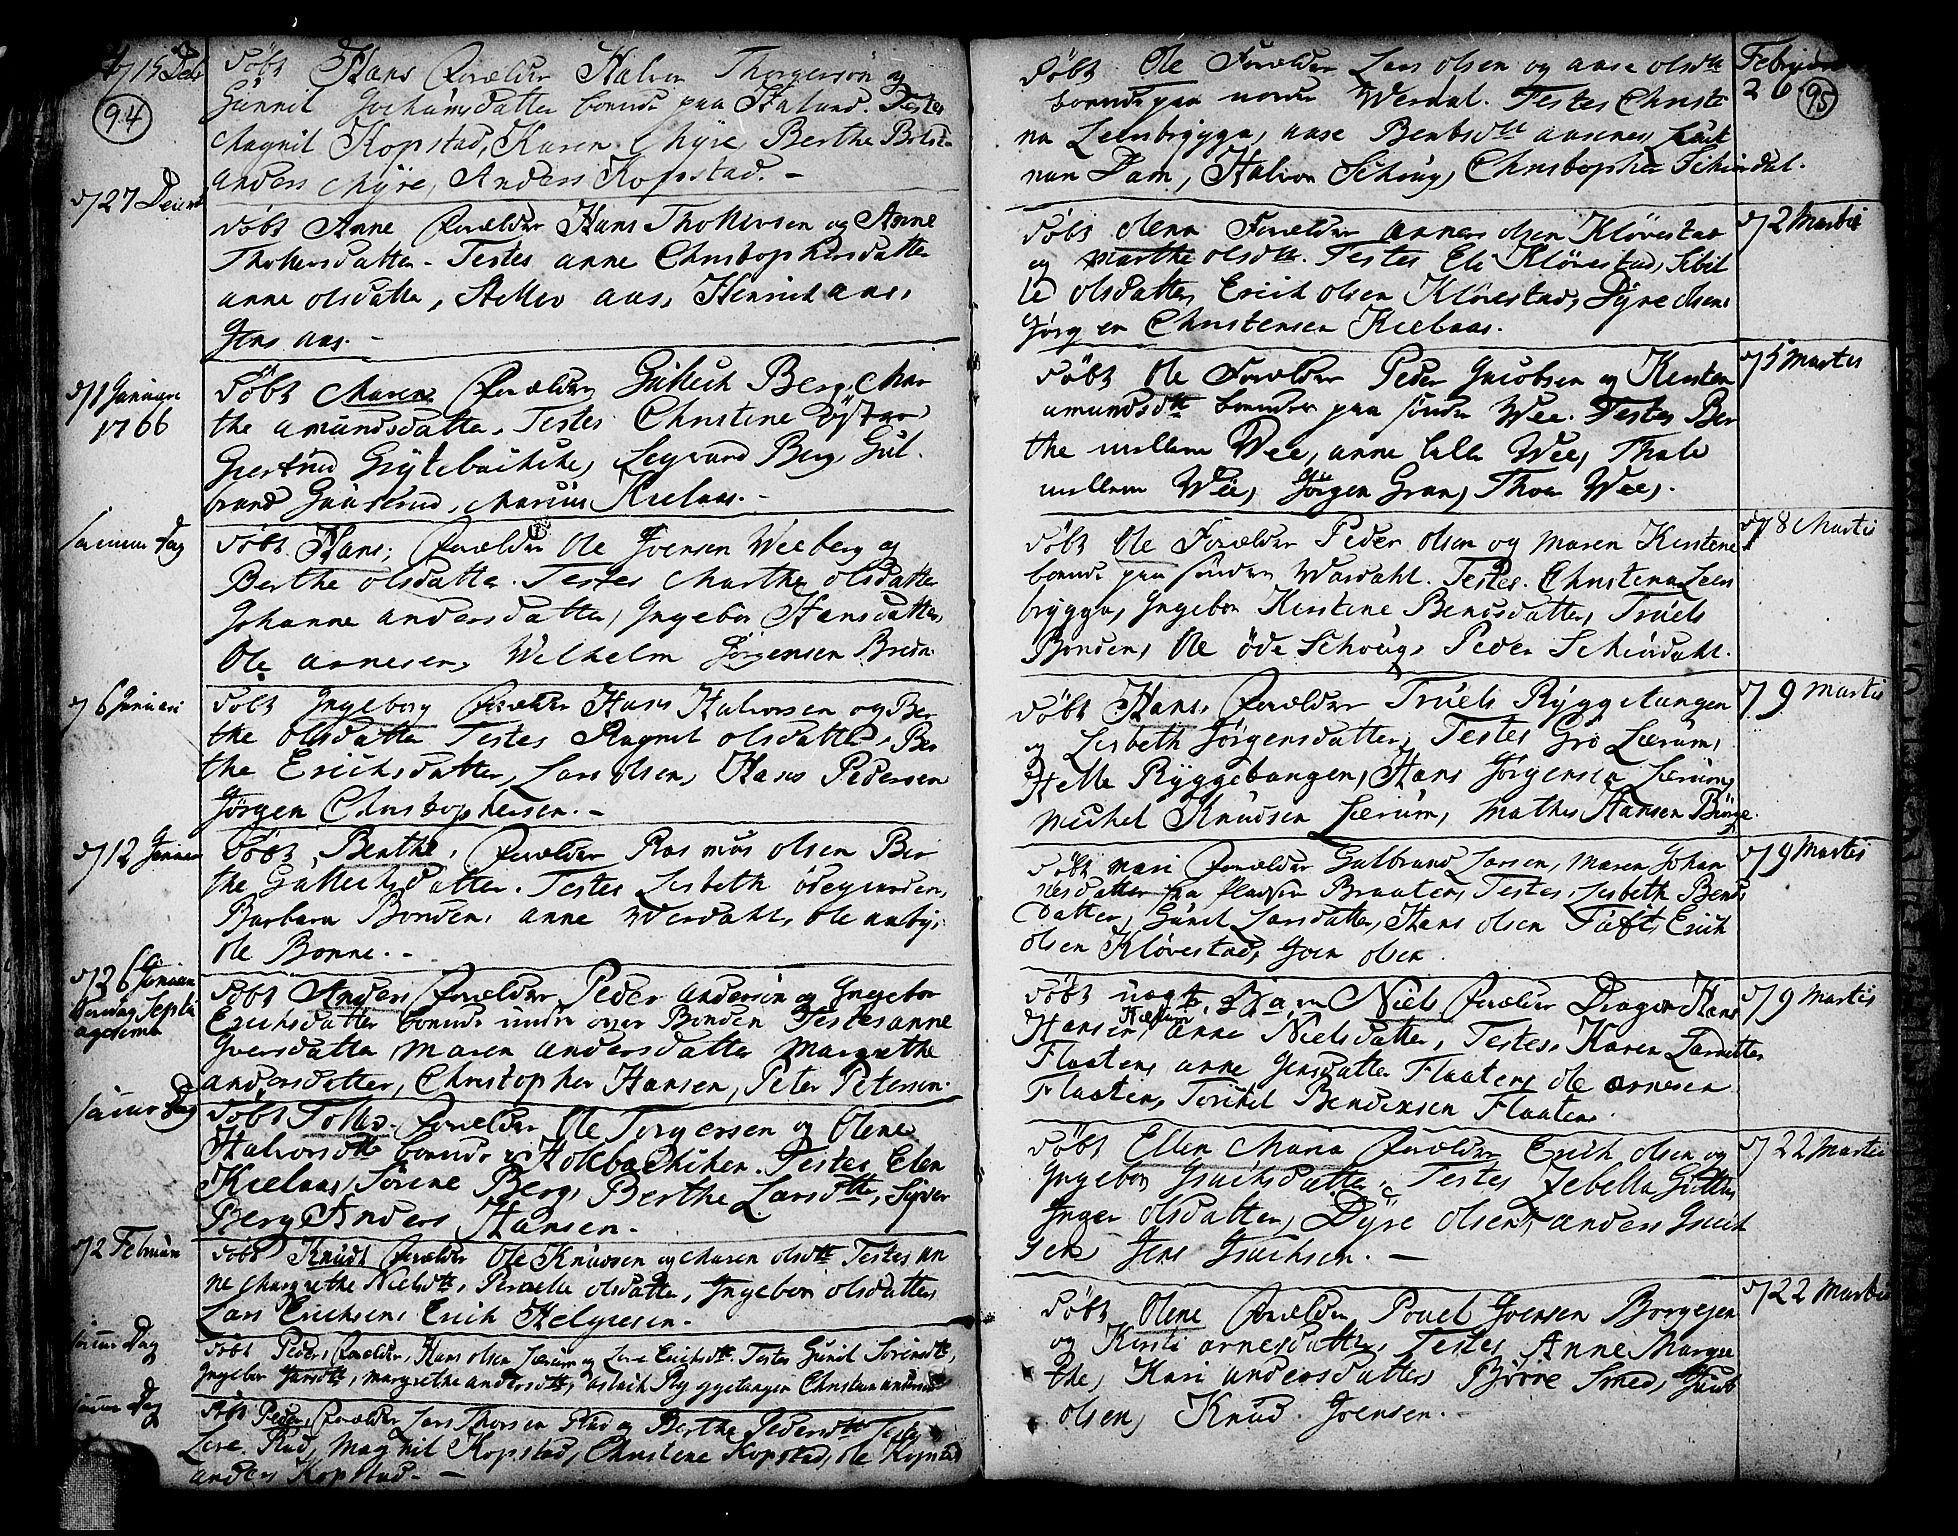 d/15 Decb
94
Döbt Hans Forældre Halvor Thorgerson og
Gunnil Jochumsdatter boende paa Testes
Magnil Kopstad, Karen Myre, Berthe
Anders Myre, Anders Kopstad. -
d/27 Decemb
Döbt Anne Forældre Hans Thollevsen og Anne
Thollevsdatter - Testes Anne Christophersdatter
Anne Olsdatter, aas, Henrich aas,
Jens aas. -
d/1 Januarii
1766
Döbt Maren Forældre Gullich Berg, Mar
the Amundsdatter. Testes Christine
Giertrud Berg, Gul
brand Kielaas. -
samme Dag
Döbt Hans, Forældre Ole Joensen Weeberg og
Berthe Olsdatter. Testes Marthe Olsdatter
Johanne Andersdatter, Ingebor Hansdatter,
Ole Arnesen, Wilhelm Jörgensen
d/6 Januarii
Döbt Ingeborg Forældre Hans Halvorsen og Ber
the Olsdatter Testes Ragnil Olsdatter, Ber
the Erichsdatter, Lars Olsen, Hans Pedersen
Jörgen Christophersen. -
d/12 Januar
Döbt Berthe, Forældre Rasmus Olsen Ber
the Gullichsdatter. Testes Lisbeth Ödegaarden,
Barbara Bonden, Anne Werdahl, Ole
Ole Bonne. -
d/26 Januar
Septu
agesima
Döbt Anders Forældre Peder Andersen og Ingebor
Erichsdatter boende under Bonden Testes Anne
Iversdatter Maren Andersdatter Margrethe
Andersdatter, Christopher Hansen, Peter Petersen.
samme Dag
Döbt Forældre Ole Torgersen og Olene
Halvorsdtr boende Testes Elen
Kielaas, Sörene Berg, Berthe Larsdtr,
Berg Anders Hansen. -
d/2 Februari
Döbt Knud Forældre Ole Knudsen og Maren Olsdtr Testes An
ne Margrethe Nielsdtr, Pernille Olsdatter, Ingebor Olsdatter
Lars Erichsen, Erich Helgiesen. -
samme Dag
Döbt Peder, Forældre, Hans Olsen Lærum og Live Erichsdtr. Testes Gunil Sörensdtr,
Ingebor Margrethe Andersdtr, Aslach Ryggetangen Christian
samme Dag
Döbt Peder, Forældre Lars Thorsen Rud og Berthe Pedersdtr Testes
Live Rud, Magnil Kopstad, Christene Kopstad, Ole Kopstad
Anders Kopstad. -
Februar
26
95
Döbt Ole Forældre Lars Olsen og Aase Olsdtr
boende paa nordre Werdal. Testes Christi
na Leensbrygga, Aase Bentsdtr Aasnes, Leut
nan Dam, Halvor Schoug, Christopher Schiudal.
d/2 Martii
Döbt Forældre Olsen Klövestad
og Marthe Olsdtr. Testes Eli Klövestad, Sibil
le Olsdatter, Erich Olsen Klövestad, Dyre Olsen
Jörgen Christensen Kielaas.
d/5 Martii
Döbt Ole Forældre Peder Jacobsen og Kirsten
Amundsdtr boende paa söndre Wee. Testes Ber
the mellem Wee, Anne lille Wee, Thale
mellem Wee, Jörgen Gran, Thor Wee,
d/8 Martii
Döbt Ole Forældre Peder Olsen og Maren Kirstene
boende paa söndre Werdahl. Testes. Christena Leens
brygga, Ingebor Kirstine Bendsdatter, Truels
Bonden, Ole Öde Schoug, Peder Schiudahl.
d/9 Martii
Döbt Hans, Forældre Truels Ryggetangen
og Lisbeth Jörgensdatter, Testes Gro Lærum,
Helle Ryggetangen, Hans Jörgensen Lærum,
Michel Knudsen Lærum, Mathis Hansen
d/9 Martii
Döbt Mari Forældre Gulbrand Larsen, Maren Johan
nesdatter fra Pladsen Braaten, Testes Lisbeth Bends
datter, Gunil Larsdatter, Hans Olsen Erich
Olsen Klövestad, Joen Olsen.
d/9 Martii
Döbt Niels Forældre Dragon Hans
Hansen Anne Nielsdatter, Testes, Karen
Flaaten, Anne Jensdatter Flaaten, Ole Arnesen
Flaaten, Torchel Bendixsen Flaaten.
d/22 Martii
Döbt Ellen Maria Forældre Erich Olsen og
Ingebor Testes Zebella
Inger Olsdatter, Dyre Olsen, Anders
sen, Jens
d/22 Martii
Döbt Olene Forældre Povel Joensen Borgejen
og Kirsti Arnesdatter, Testes Anne Margre
the, Kari Andersdatter Börre Smed,
Olsen, Knud Joensen.